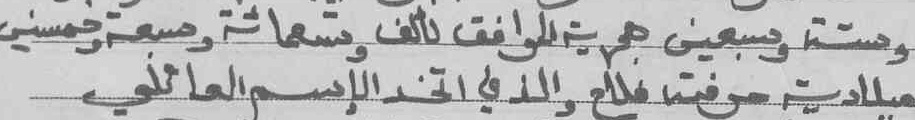 وستة وسبعين هجرية الموافق لألف وتسعمائة وسبعة وخمسين
ميلادية حرفته فلاح والذي اتخذ الإسم العائلي